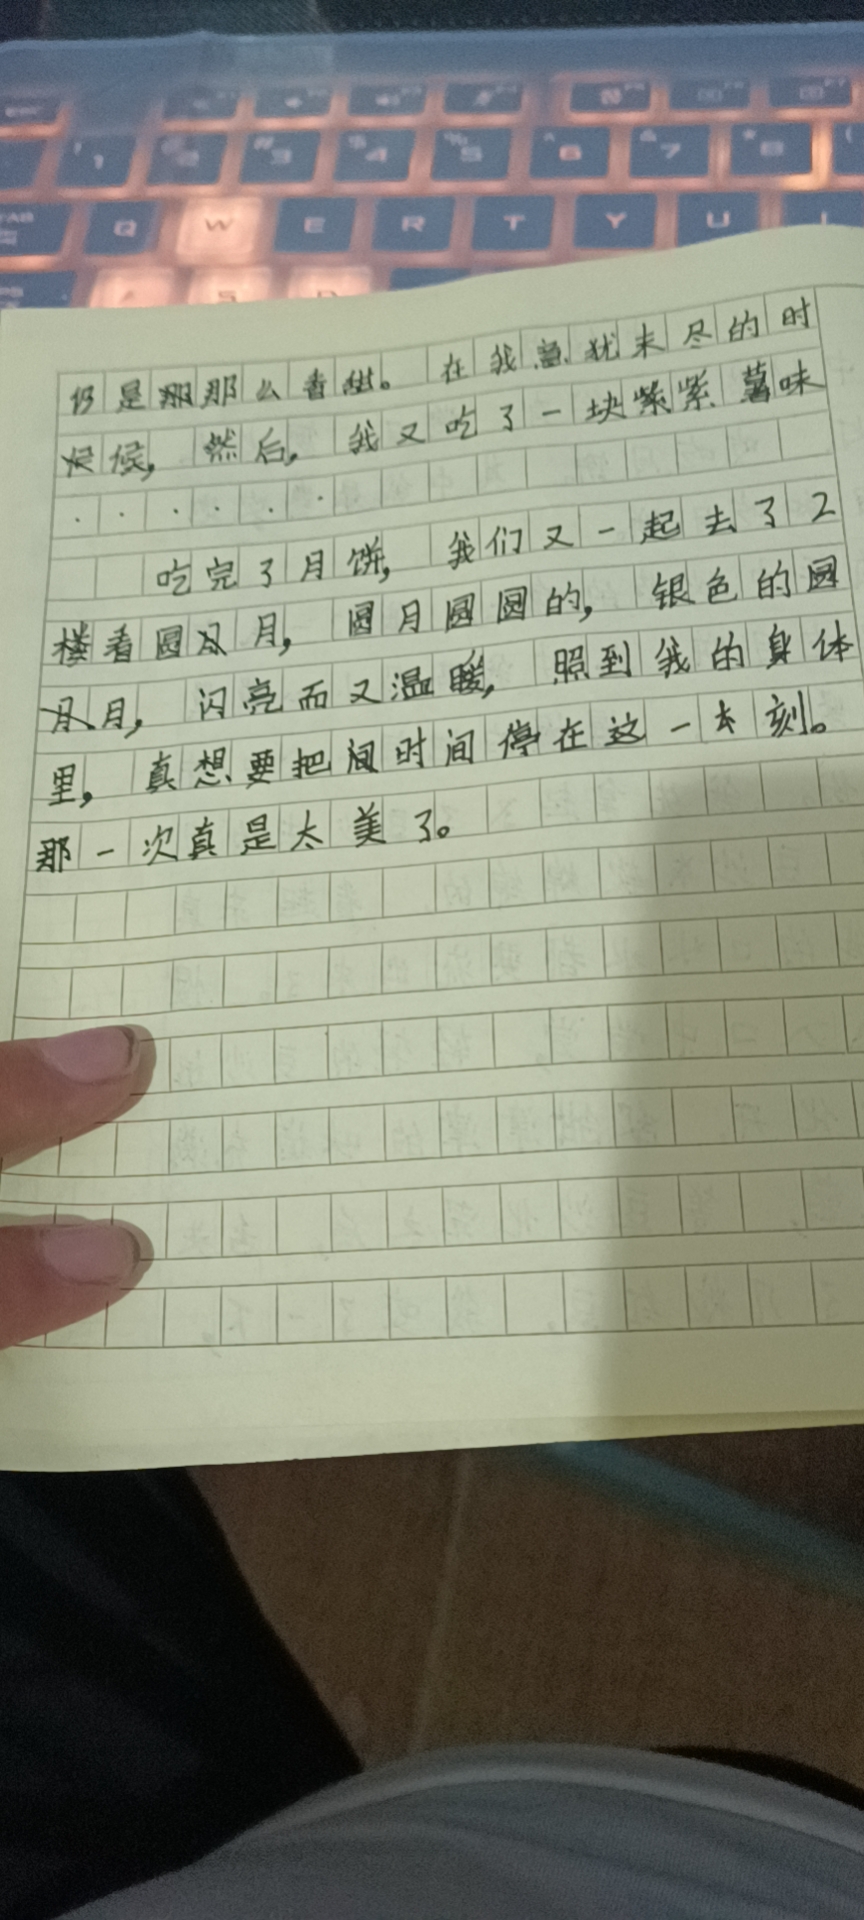 1 2 3 4 5 6 7 8
Q W E R T Y U I
仍是那那么香甜。在我意犹未尽的时
候候，然后，我又吃了一块紫紫薯味
······
吃完了月饼，我们又一起去了2
楼看圆月月，圆月圆圆的，银色的圆
月月，闪亮而又温暖，照到我的身体
里，真想要把间时间停在这一去刻。
那一次真是太美了。